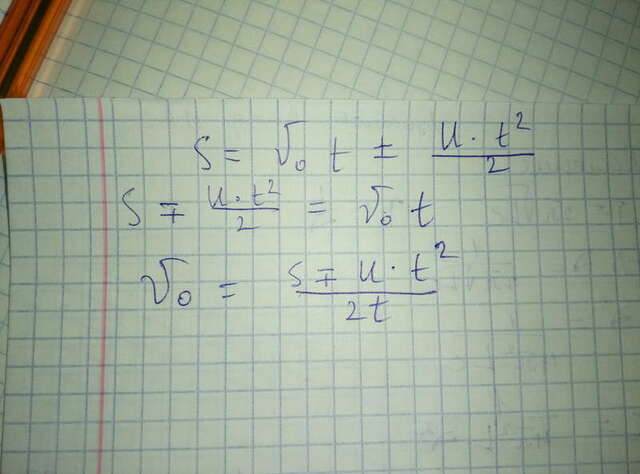 S = V₀ t ± u · t² / 2
S ∓ u · t² / 2 = V₀ t
V₀ = S ∓ u · t² / 2t